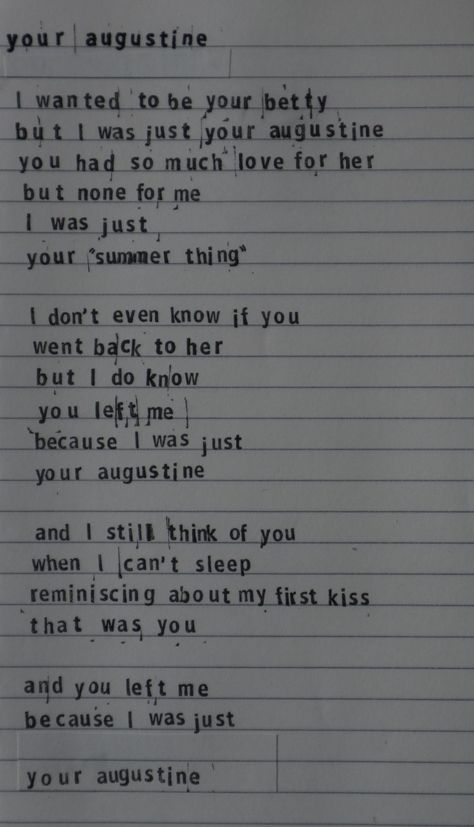 your augustine
I wanted to be your betty
but I was just your augustine
you had so much love for her
but none for me
I was just
your "summer thing"
I don't even know if you
went back to her
but I do know
you left me
because I was just
your augustine
and I still think of you
when I can't sleep
reminiscing about my first kiss
that was you
and you left me
because I was just
your augustine